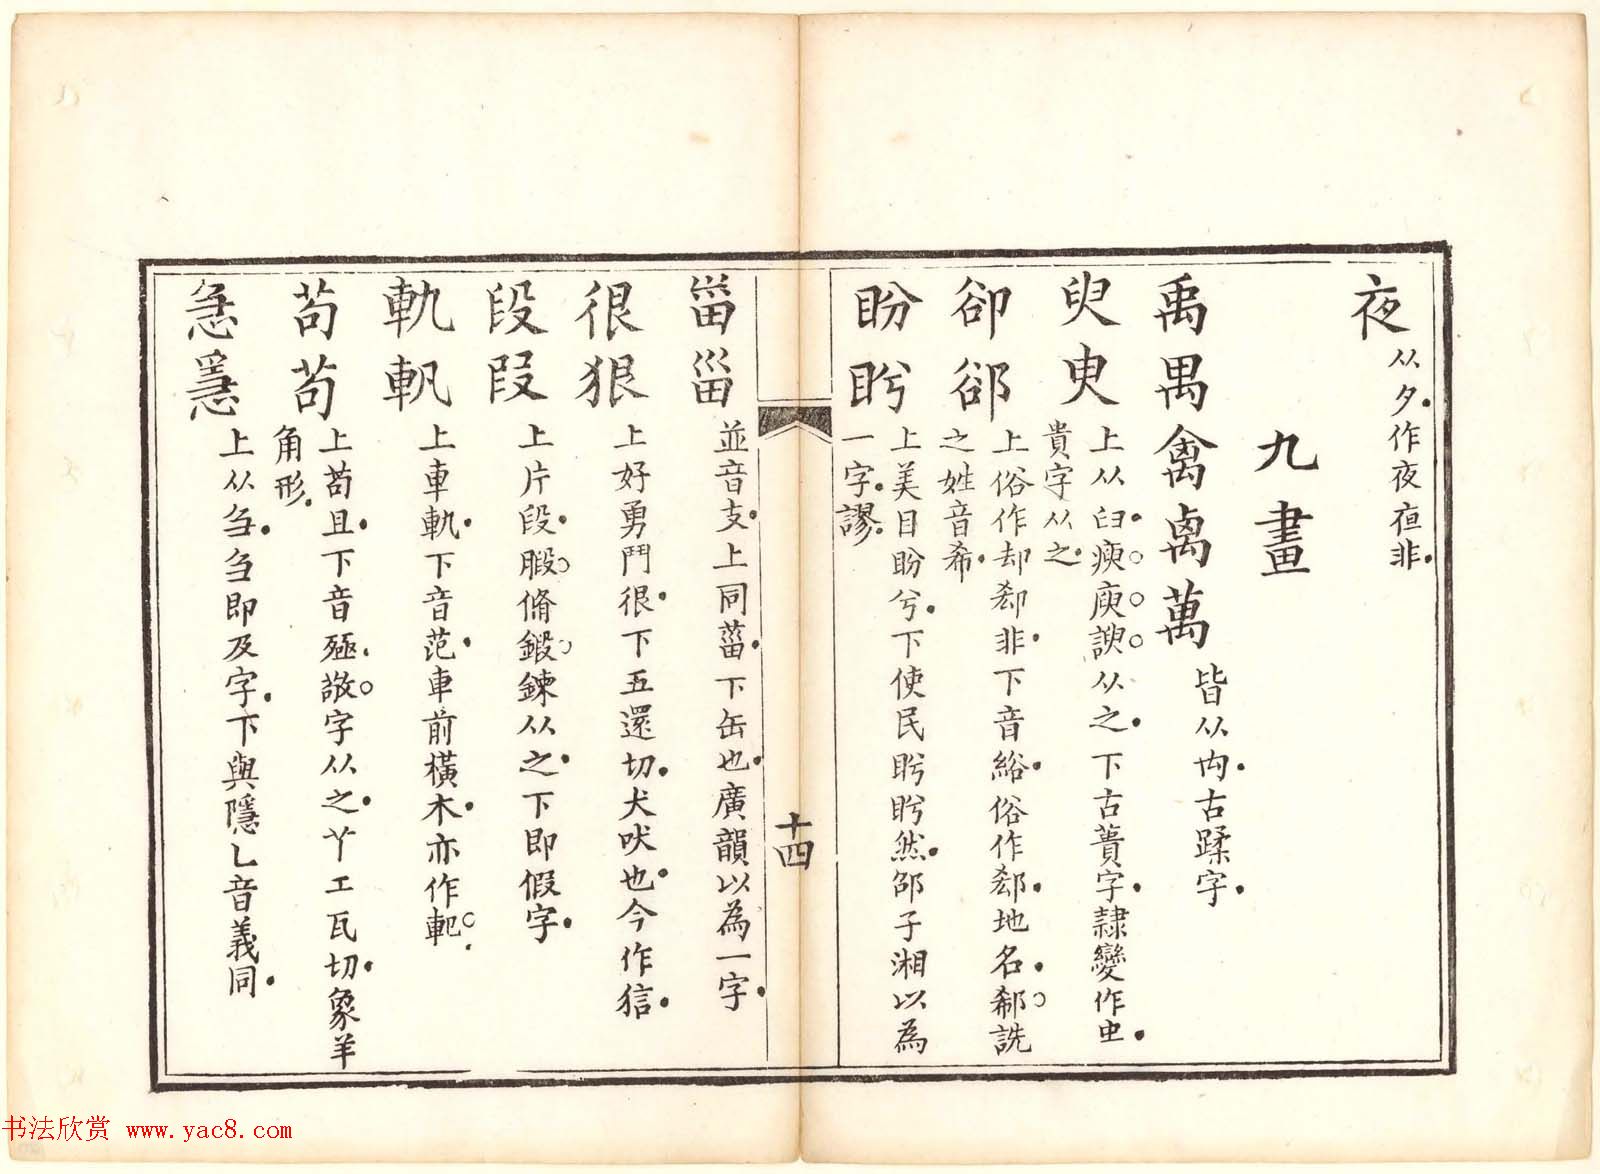 夜 从夕作夜亱非
九畫
禹禺禽禼萬 皆从禸古蹂字
臾𠀐 上从𦥑瘐庾諛从之下古蕢字隷變作䖝
貴字从之
卻郤 上俗作却郄非下音綌俗作郄地名郗詵
之姓音希
盼盻 上美目盼兮下使民盻盻然邵子湘以為
一字謬
十四
甾甾 並音支上同菑下缶也廣韻以為一字
很狠 上好勇鬥很下五還切犬吠也今作狺
段叚 上片段腶脩鍛鍊从之下即假字
軌軓 上車軌下音范車前橫木亦作軶
苟茍 上苟且下音殛敬字从之丫工瓦切象羊
角形
急㥯 上从刍刍即及字下與隱乚音義同
书法欣赏 www.yac8.com